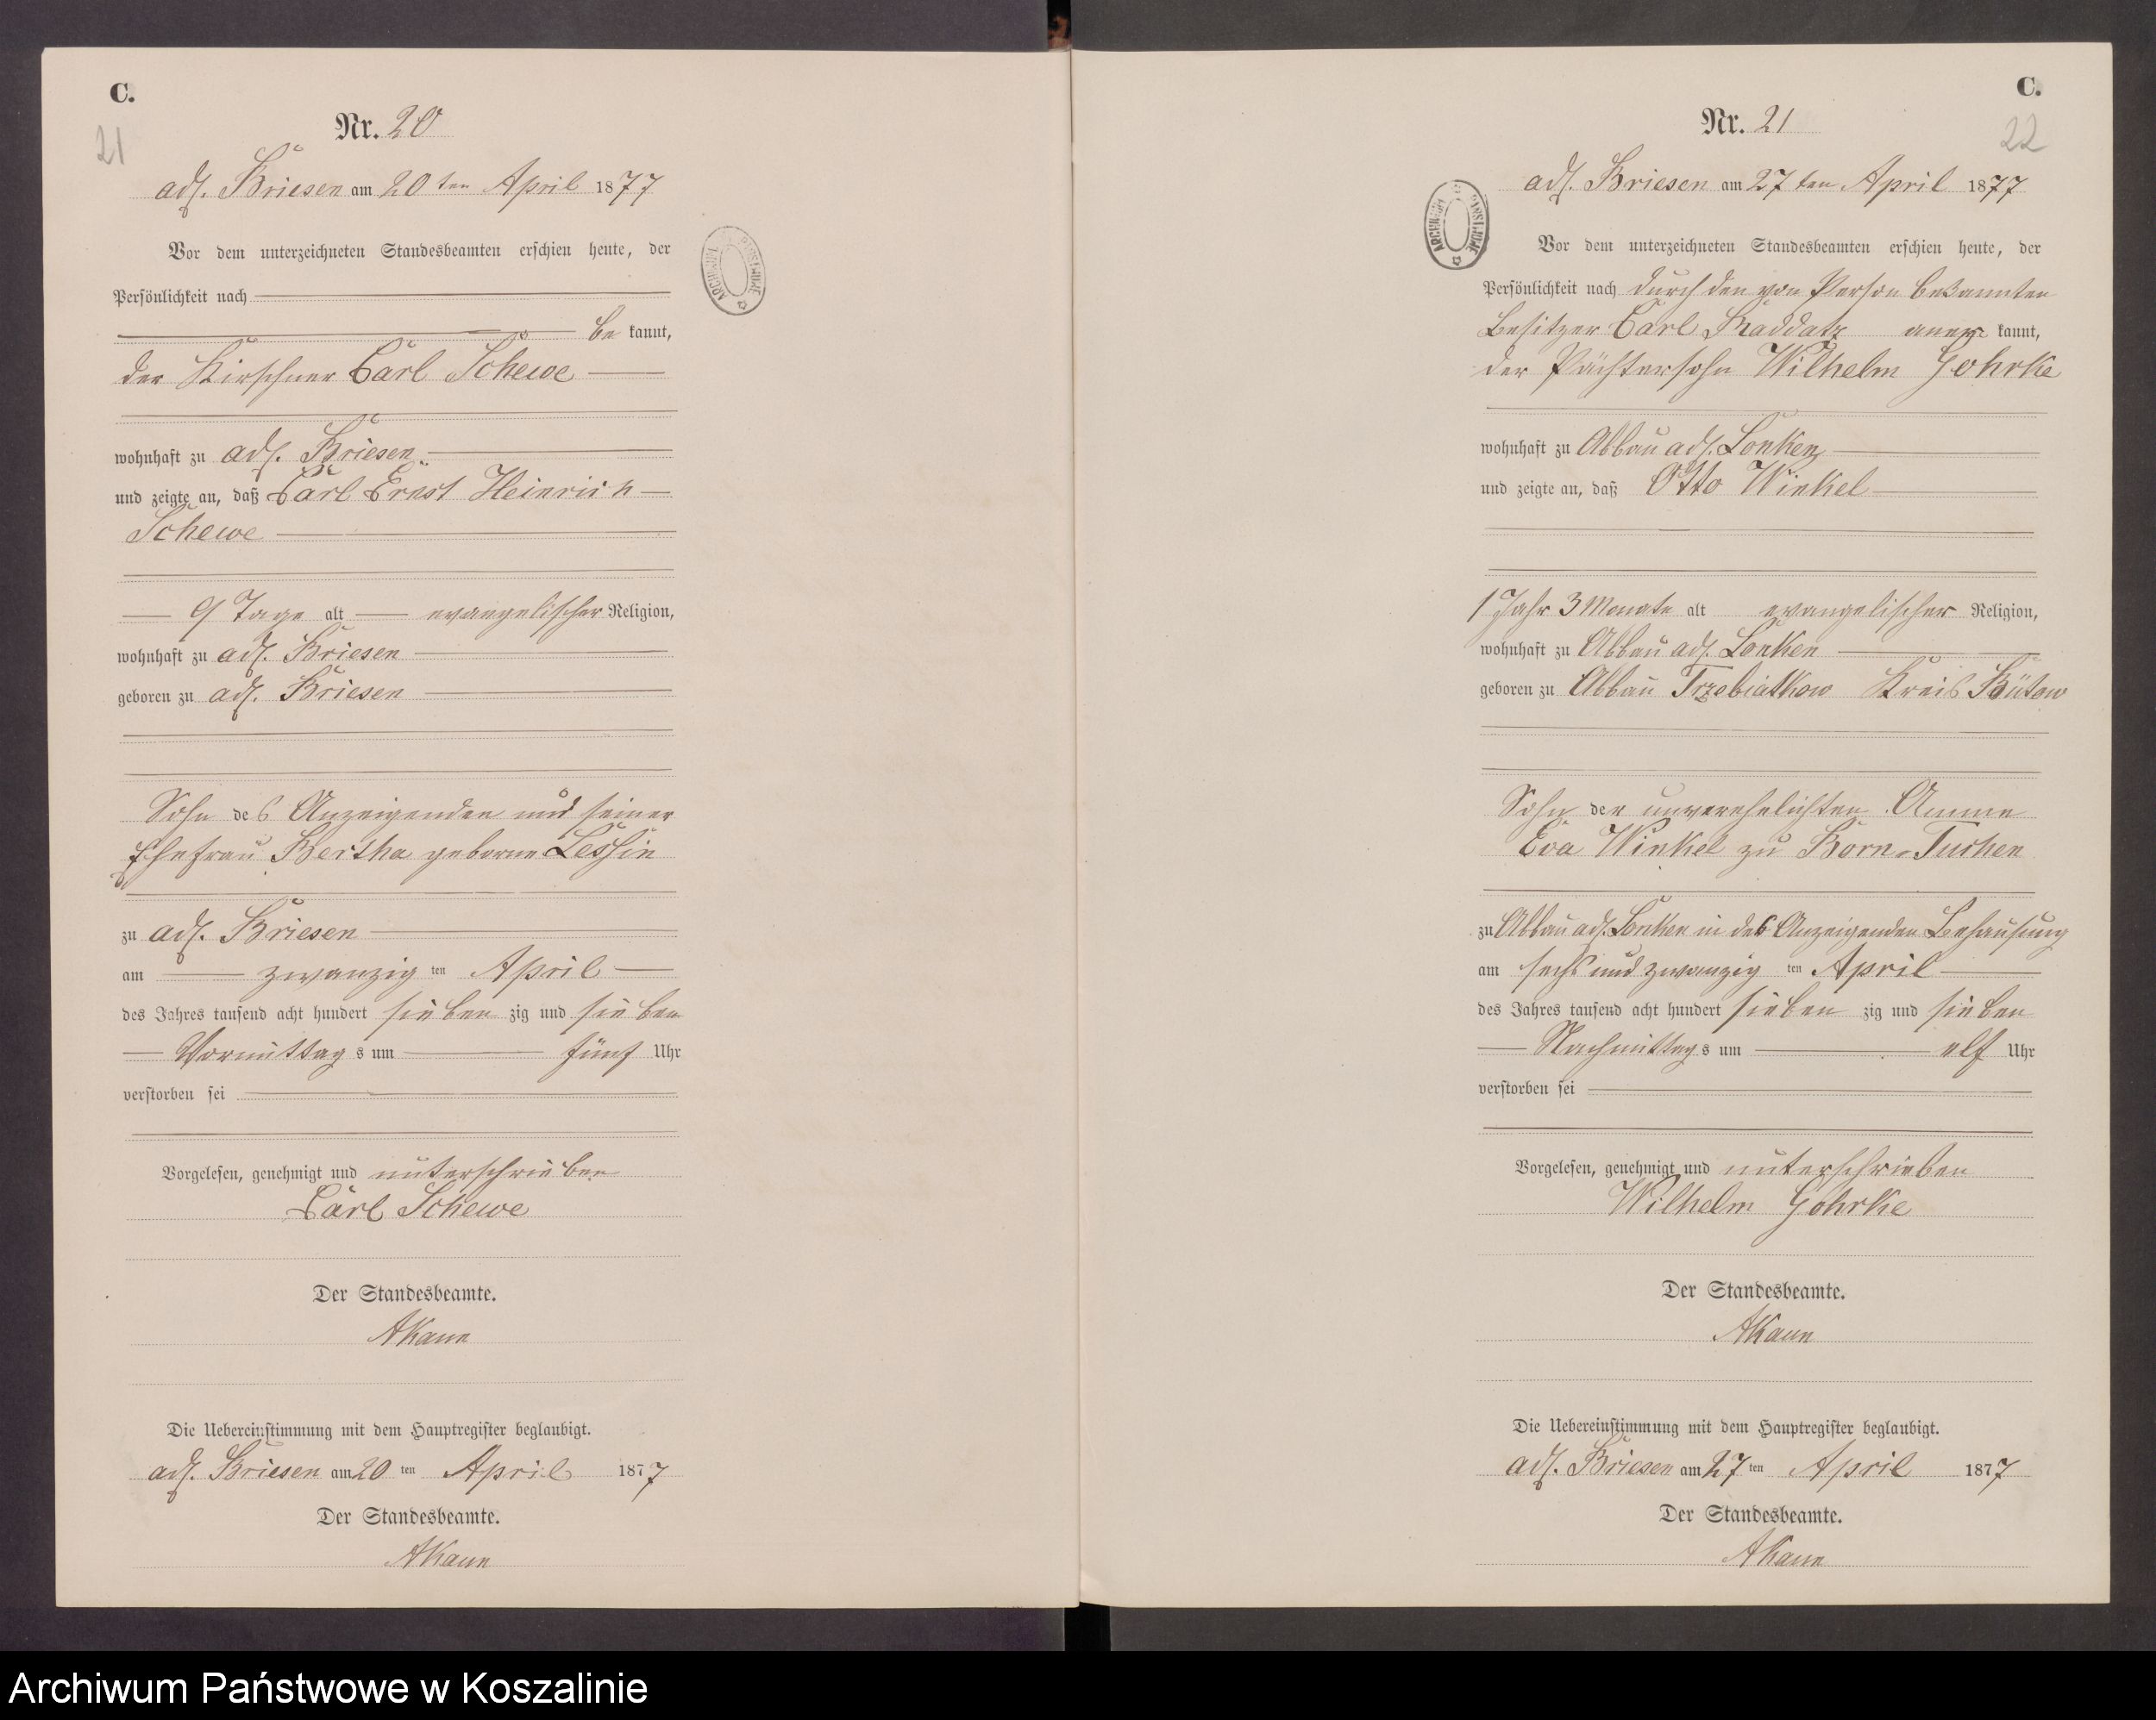 C.
21
Nr. 20
adl. Briesen am 20 ten April 1877
Vor dem unterzeichneten Standesbeamten erschien heute, der
Persönlichkeit nach
be kannt,
der Kirschner Carl Schewe
wohnhaft zu adl. Briesen
und zeigte an, daß Carl Ernst Heinrich
Schewe
9 Tage alt evangelischer Religion,
wohnhaft zu adl. Briesen
geboren zu adl. Briesen
Sohn des Anzeigenden und seiner
Ehefrau Bertha geborne Lessin
zu adl. Briesen
am zwanzig ten April
des Jahres tausend acht hundert sieben zig und sieben
Vormittag s um fünf Uhr
verstorben sei
Vorgelesen, genehmigt und unterschrieben
Carl Schewe
Der Standesbeamte.
AKaun
Die Uebereinstimmung mit dem Hauptregister beglaubigt.
adl. Briesen am 20 ten April 1877
Der Standesbeamte.
AKaun
C.
22
Nr. 21
adl. Briesen am 27 ten April 1877
Vor dem unterzeichneten Standesbeamten erschien heute, der
Persönlichkeit nach durch den von Person bekannten
Besitzer Carl Raddatz aner kannt,
der Pächtersohn Wilhelm Gohrke
wohnhaft zu Abbau adl. Lonken
und zeigte an, daß Otto Winkel
1 Jahr 3 Monate alt evangelischer Religion,
wohnhaft zu Abbau adl. Lonken
geboren zu Abbau Trzebiatkow Kreis Bütow
Sohn der unverehelichten Amme
Eva Winkel zu Born-Tuchen
zu Abbau adl. Lonken in des Anzeigenden Behausung
am sechs und zwanzig ten April
des Jahres tausend acht hundert sieben zig und sieben
Nachmittag s um elf Uhr
verstorben sei
Vorgelesen, genehmigt und unterschrieben
Wilhelm Gohrke
Der Standesbeamte.
AKaun
Die Uebereinstimmung mit dem Hauptregister beglaubigt.
adl. Briesen am 27 ten April 1877
Der Standesbeamte.
AKaun
Archiwum Państwowe w Koszalinie